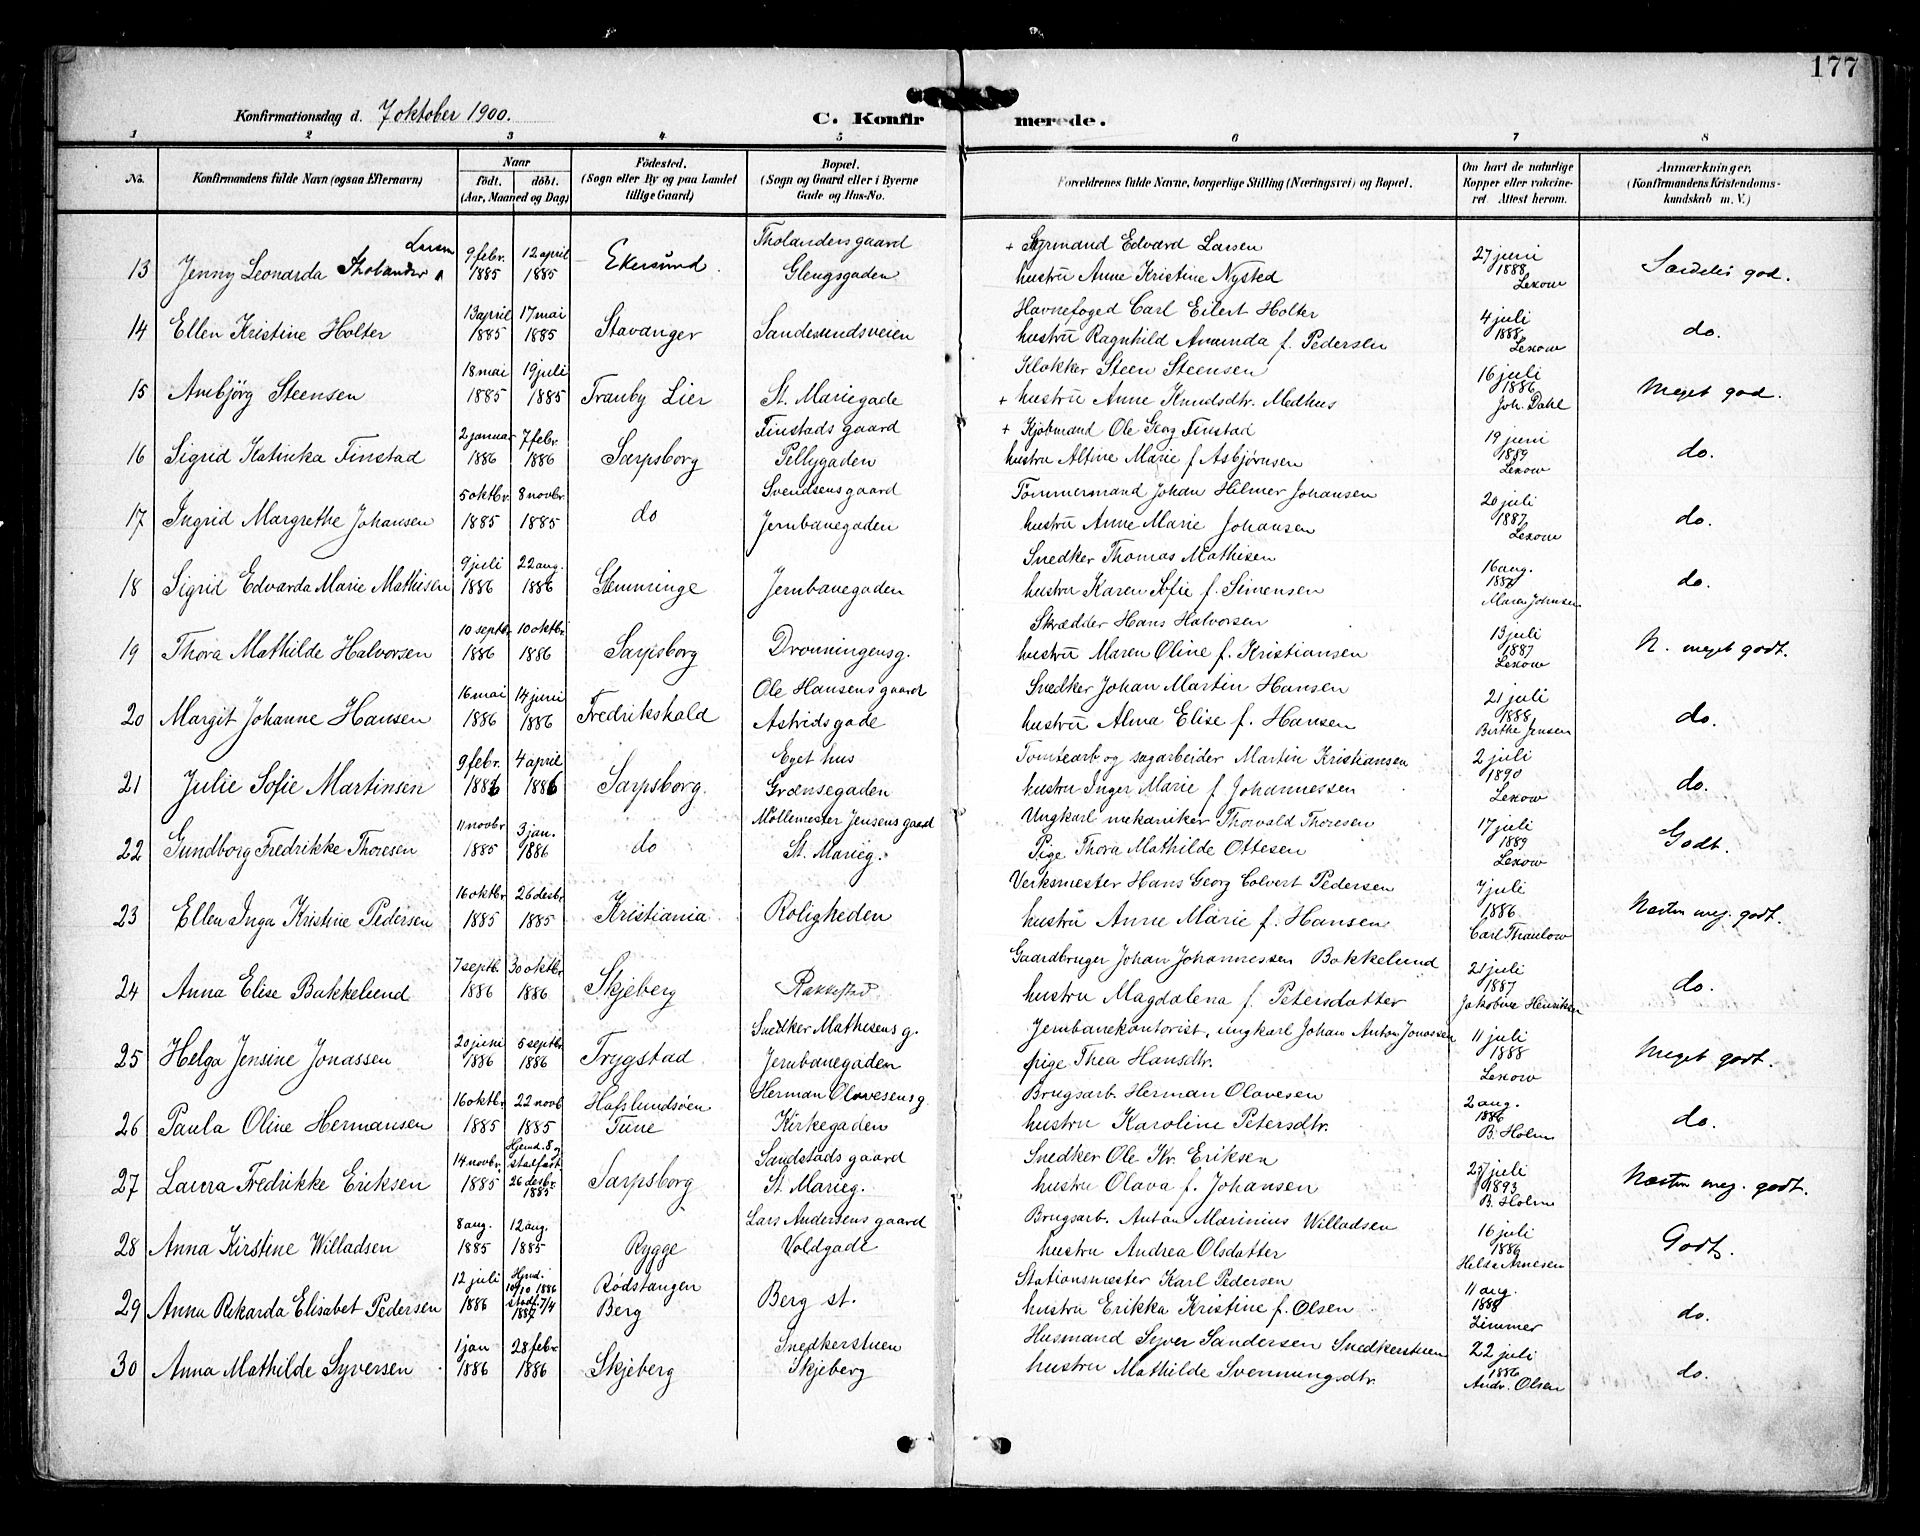 177
Konfirmationsdag d. 7 oktober 1900.
C. Konfirmerede.
1 2 3 4 5 6 7 8
No.
Konfirmandens fulde Navn (ogsaa Efternavn)
Naar
født. døbt.
(Aar, Maaned og Dag)
Födested.
(Sogn eller By og paa Landet
tillige Gaard)
Bopæl.
(Sogn og Gaard eller i Byerne
Gade og Hus-No.
Forældrenes fulde Navne, borgerlige Stilling (Næringsvei) og Bopæl.
Om havt de naturlige
Kopper eller vakcine-
ret. Attest herom.
Anmærkninger.
(Konfirmandens Kristendoms-
kundskab m. V.)
Larsen 9 febr. 12 april Tholandersgaard + Styrmand Edvard Larsen 27 juni
13 Jenny Leonarda Tholander 1885 1885 Ekersund. Glengsgaden hustru Anne Kristine Nysted 1888 Lexow Særdeles god.
13 april 17 mai Havnefoged Carl Eilert Holter 4 juli
14 Ellen Kristine Holter 1885 1885 Stavanger Sandesundsveien hustru Ragnhild Amunda f. Pedersen 1888 Lexow do.
18 mai 19 juli Klokker Steen Steensen 16 juli
15 Ambjörg Steensen 1885 1885 Tranby Lier St. Mariegade + hustru Anne Knudsdtr. Medhus 1886 Joh. Dahl Meget god.
2 januar 7 febr. Finstads gaard + Kjöbmand Ole Georg Finstad 19 juni
16 Sigrid Katinka Finstad 1886 1886 Sarpsborg Pellygaden hustru Altine Marie f Asbjörnsen 1889 Lexow do.
5 oktbr. 8 novbr. Svendsens gaard Tömmermand Johan Hilmer Johansen 20 juli
17 Ingrid Margrethe Johansen 1885 1885 do Jernbanegaden hustru Anne Marie Johansen 1887 Lexow do.
9 juli 22 aug. Snedker Thomas Mathisen 16 aug.
18 Sigrid Edvarda Marie Mathisen 1886 1886 Glemminge Jernbanegaden hustru Karen Sofie f. Simensen 1887 Maren Johnsen do.
10 septbr. 10 oktbr. Skrædder Hans Halvorsen 13 juli
19 Thora Mathilde Halvorsen 1886 1886 Sarpsborg Dronningensg. hustru Maren Oline f. Kristiansen 1887 Lexow N. meget godt.
16 mai 14 juni Ole Hansens gaard Snedker Johan Martin Hansen 21 juli
20 Margit Johanne Hansen 1886 1886 Fredrikshald Astridsgade hustru Alma Elise f. Hansen 1888 Birthe Jensen do.
9 febr. 4 april Eget hus Tomtearb og sagarbeider Martin Kristiansen 2 juli
21 Julie Sofie Martinsen 1886 1886 Sarpsborg. Grænsegaden hustru Inger Marie f Johannessen 1890 Lexow do.
11 novbr 3 jan. Möllemester Jensens gaard Ungkarl mekaniker Thorvald Thoresen 17 juli
22 Gundborg Fredrikke Thoresen 1885 1886 do St. Marieg. Pige Thora Mathilde Ottesen 1889 Lexow Godt.
16 oktbr 26 desbr. Verksmester Hans Georg Colvert Pedersen 7 juli
23 Ellen Inga Kristine Pedersen 1885 1885 Kristiania Roligheden hustru Anne Marie f. Hansen 1886 Carl Thaulow Næsten meg. godt.
7 septb. 30 oktbr Gaardbruger Johan Johannessen Bakkelund 21 juli
24 Anna Elise Bakkelund 1886 1886 Skjeberg Rakkestad hustru Magdalena f. Petersdatter 1887 Jakobine Henriksen do.
20 juni 5 septbr. Snedker Mathisens g. Jernbanekontorist, ungkarl Johan Anton Jonassen 11 juli
25 Helga Jensine Jonassen 1886 1886 Trygstad Jernbanegaden pige Thea Hansdtr. 1888 Lexow Meget godt.
16 oktbr 22 novb Hafslundsöen Herman Olavesens g. Brugsarb. Herman Olavesen 2 aug.
26 Paula Oline Hermansen 1885 1885 Tune Kirkegaden hustru Karoline Petersdtr. 1886 B. Holm do.
14 novbr. Hjemd. 8 stadfæst Sandstads gaard Snedker Ole Kr. Eriksen 25 juli
27 Laura Fredrikke Eriksen 1885 26 desbr. 1885 Sarpsborg St. Marieg. hustru Olava f. Johansen 1893 B. Holm Næsten meg. godt.
8 aug. 12 aug. Lars Andersens gaard Brugsarb. Anton Marinius Willadsen 16 juli
28 Anna Kirstine Willadsen 1885 1885 Rygge Voldgade hustru Andrea Olsdatter 1886 Hilda Arnesen Godt.
12 juli Hjmd. 10/10 1886 Rödstangen Stationsmester Karl Pedersen 11 aug.
29 Anna Rikarda Elisabet Pedersen 1886 stadf. 7/4 1887 Berg Berg st. hustru Erikka Kristine f. Olsen 1888 Zimmer do.
1 jan 28 febr. Snedkerstuen Husmand Syver Sandersen Snedkerstuen 22 juli
30 Anna Mathilde Syversen 1886 1886 Skjeberg Skjeberg hustru Mathilde Svenningsdtr. 1886 Andr. Olsen do.